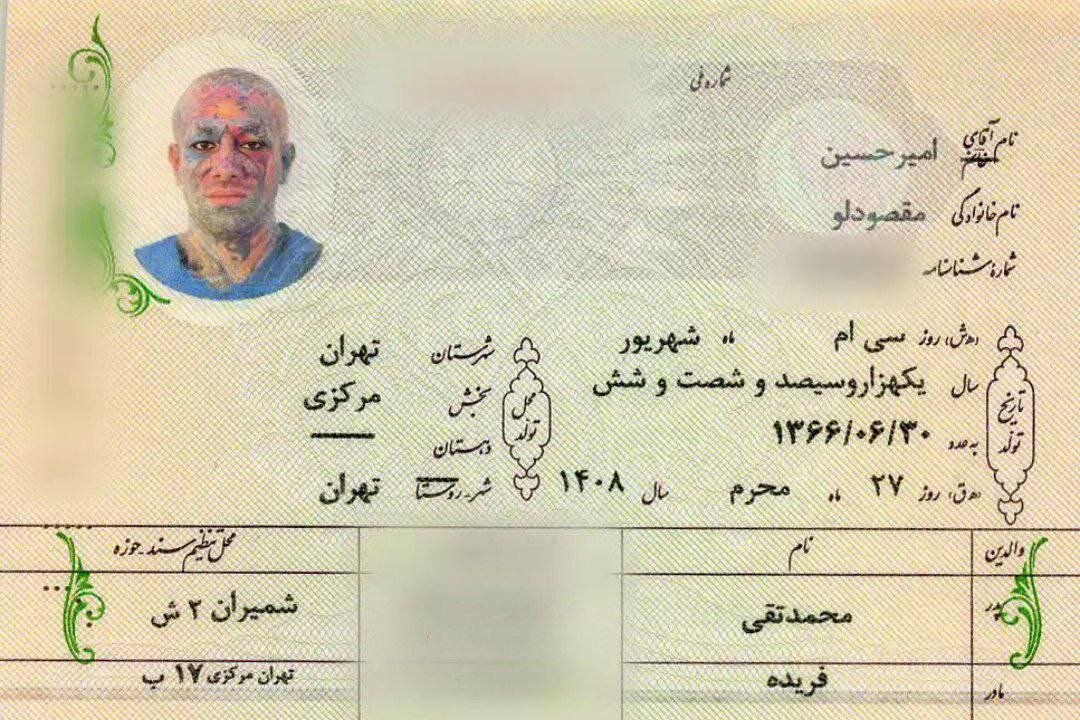 شماره ملی
نام آقای خانم امیرحسین
نام خانوادگی مقصودلو
شمارهٔ شناسنامه
تاریخ تولد
(ه‍.ش) روز سی ام ماه شهریور
سال یکهزاروسیصد و شصت و شش
به عدد ۱۳۶۶/۰۶/۳۰
(ه‍.ق) روز ۲۷ ماه محرم سال ۱۴۰۸
محل تولد
شهرستان تهران
بخش مرکزی
دهستان
شهر-روستا تهران
والدین نام محل تنظیم سند-حوزه
پدر محمدتقی شمیران ۲ ش
مادر فریده تهران مرکزی ۱۷ ب